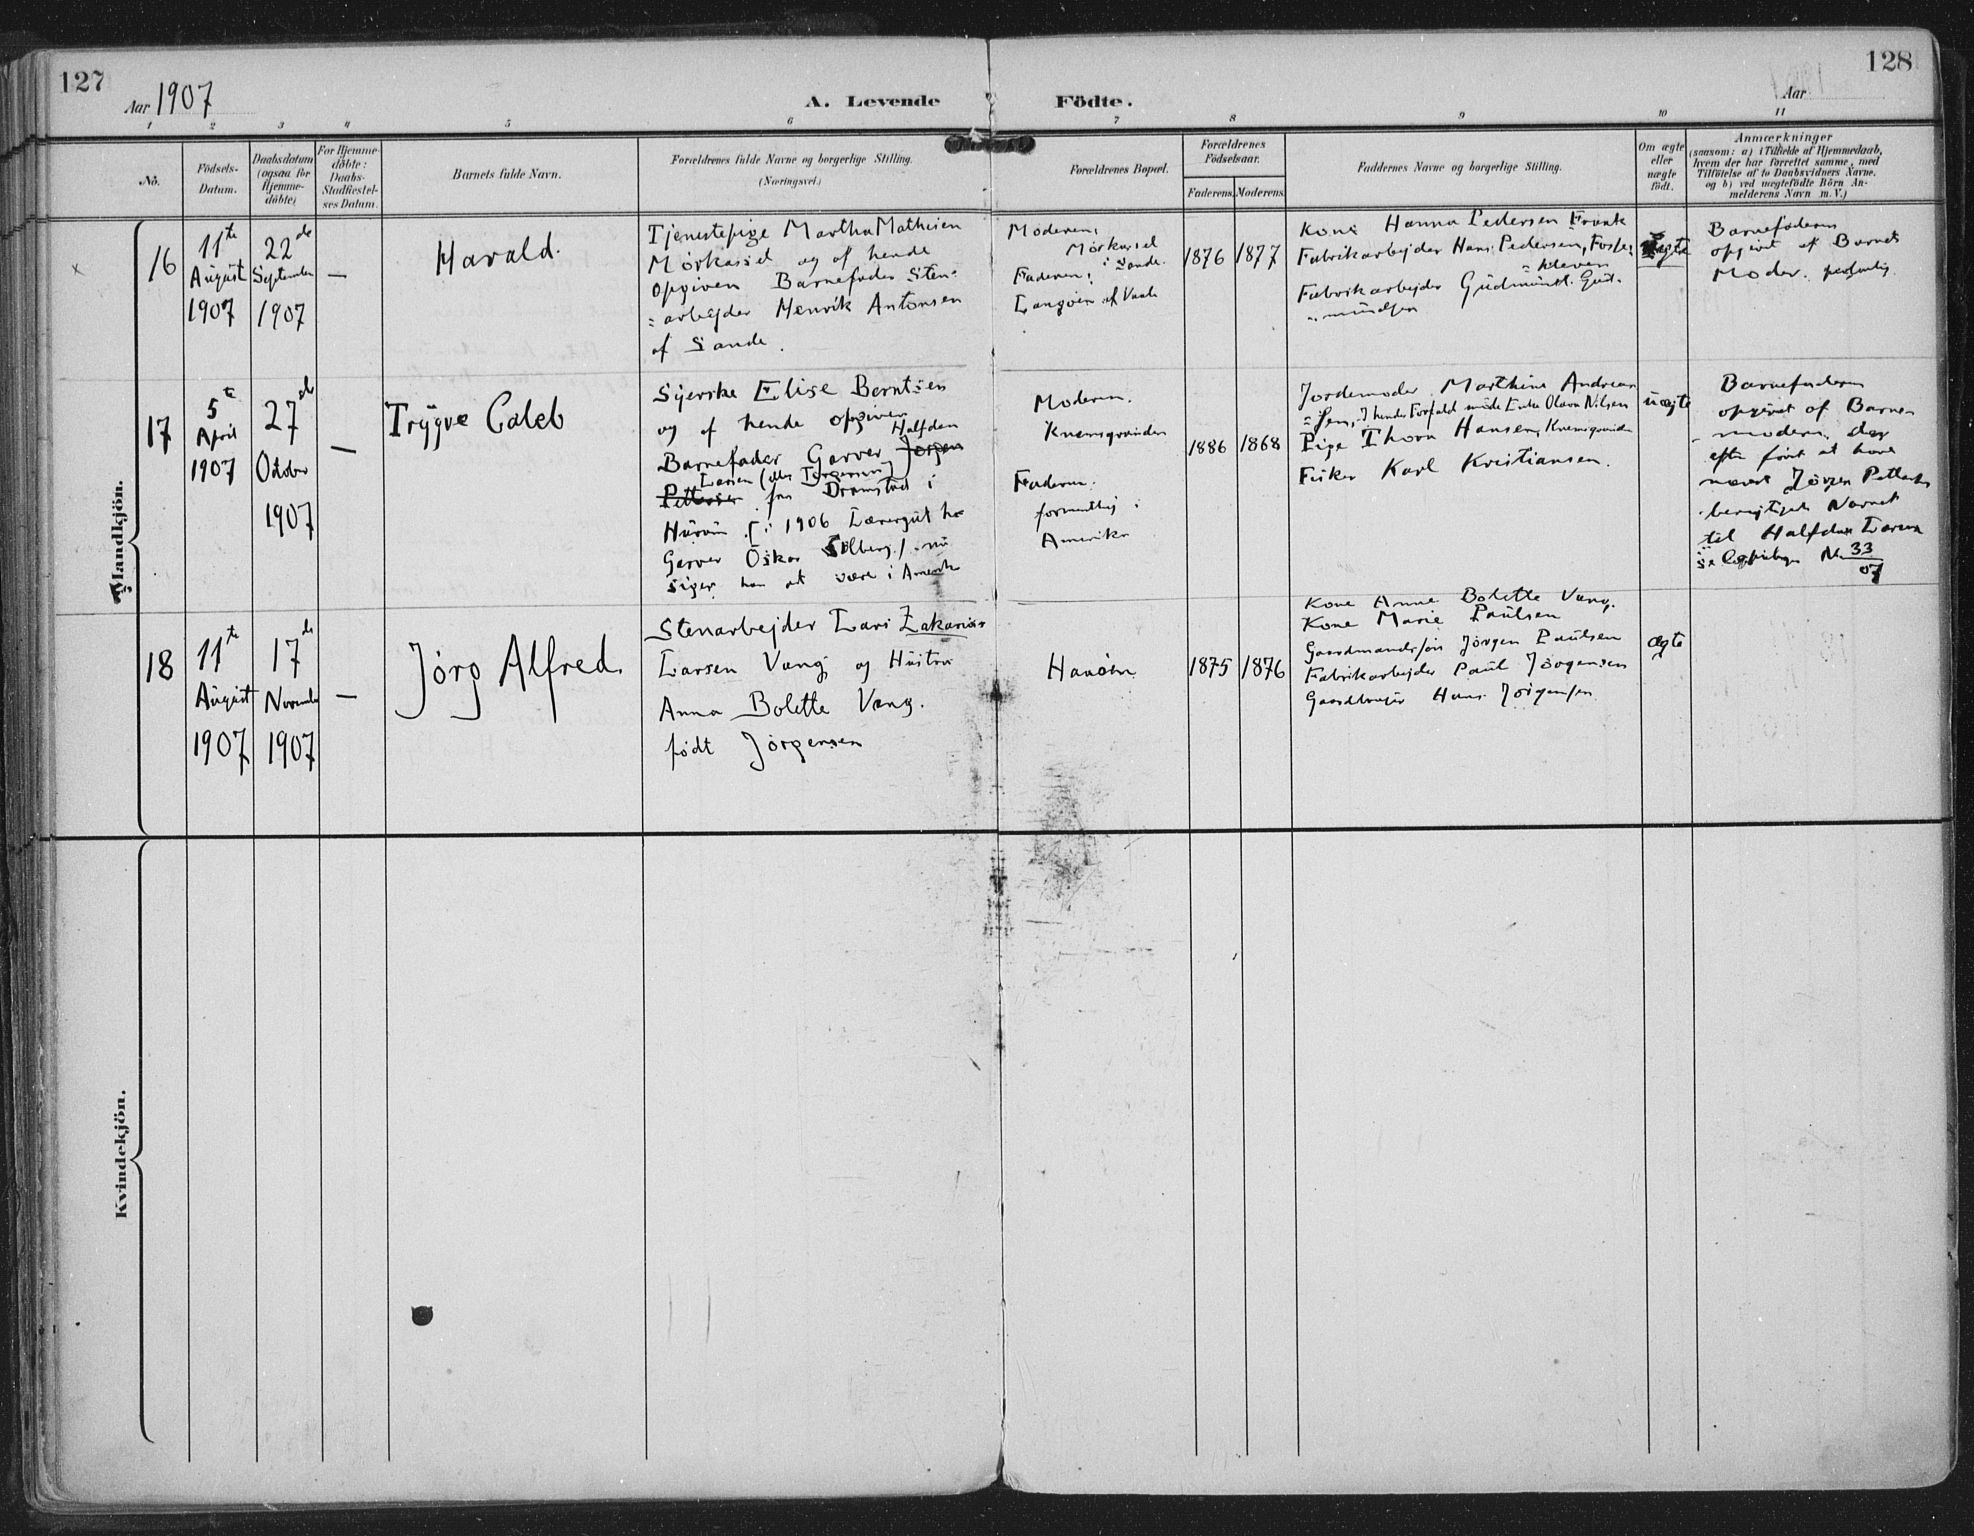 127
Aar 1907
A. Levende Födte.
Aar
128
1 2 3 4 5 6 7 8 9 10 11
No.
Födsels-
Datum.
Daabsdatum
(ogsaa for
Hjemme-
döbte)
For Hjemme-
döbte:
Daabs-
Stadfæstel-
ses Datum.
Barnets fulde Navn.
Forældrenes fulde Navne og borgerlige Stilling.
(Næringsvei.)
Forældrenes Bopæl.
Forældrenes
Födselsaar.
Faderens. Moderens.
Faddernes Navne og borgerlige Stilling.
Om ægte
eller
uægte
født.
Anmærkninger
(saasom: a) i Tilfælde af Hjemmedaab,
hvem der har forrettet samme, med
Tilföielse af to Daabsvidners Navne,
og b) ved uægtefödte Börn An-
melderens Navn m. V.)
Mandkjön.
16
11te
August
1907
22de
September
1907
—
Harald.
Tjenestepige Martha Mathisen
Mörkassel og af hende
opgiven Barnefader Sten-
=arbejder Henrik Antonsen
af Sande.
Moderen:
Mörkassel
i Sande.
Faderen:
Langöen af Vaale
1876
1877
Kone Hanna Pedersen
Fabrikarbejder Hans Pedersen,
Fabrikarbejder Gudmund Gud-
=mundsen
Barnefaderen
opgivet af Barnets
Moder personlig.
17
5te
April
1907
27de
October
1907
—
Trygve Caleb
Syerske Elise Berntsen
og af hende opgiven
Halfdan
Barnefader Garver Jörgen
Larsen (eller Jörgensen)
Pettersen fra Dramstad i
Hurum [i 1906 Læregut hos
Garver Oskar Solberg] nu
siges han at være i Amerika
Moderen.
Knemsgrunden
Faderen.
formentlig i
Amerika
1886
1868
Jordemoder Marthine Andrea
=sen, I hendes Forfald mödte Enke Olava Nilsen
Pige Thora Hansen, Knemsgrunden
Fisker Karl Kristiansen.
uægte
Barnefaderen
opgivet af Barne-
-moderen, der
efter först at have
nævnt Jörgen Pettersen
berigtiget Navnet
til Halfdan Larsen
se Copibogen No 33/07
18
11te
August
1907
17de
November
1907
—
Jörg Alfred.
Stenarbejder Lars Zakarias
Larsen Vang og Hustru
Anna Bolette Vang.
født Jörgensen
Havöen
1875
1876
Kone Anne Bolette Vang.
Kone Marie Paulsen
Gaardmandssön Jörgen Paulsen
Fabrikarbejder Paul Jörgensen
Gaardbruger Hans Jörgensen
ægte
Kvindekjön.